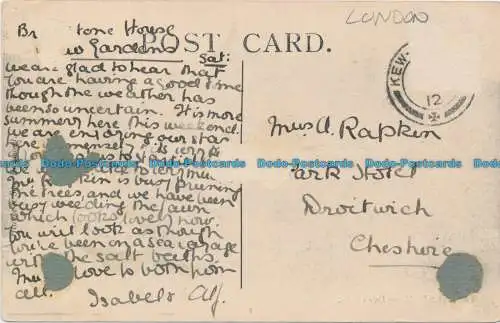 LONDON
POST CARD.
Br tone House
w Gardens
Sat:
we are glad to hear that
you are having a good time
though the weather has
been so uncertain. It is more
summery here this weekend.
we are enjoying our stay
is busy pruning
the trees, and we have been
busy weeding the lawn
which looks lovely now.
You will look as though
you've been on a sea voyage
with the salt baths.
Much love to both from
all. Isabel
KEW.
12
Mrs A. Rapkin
Park Hotel
Droitwich
Cheshire
Dodo-Postcards Dodo-Postcards Dodo-Postcards Dodo-Postcards